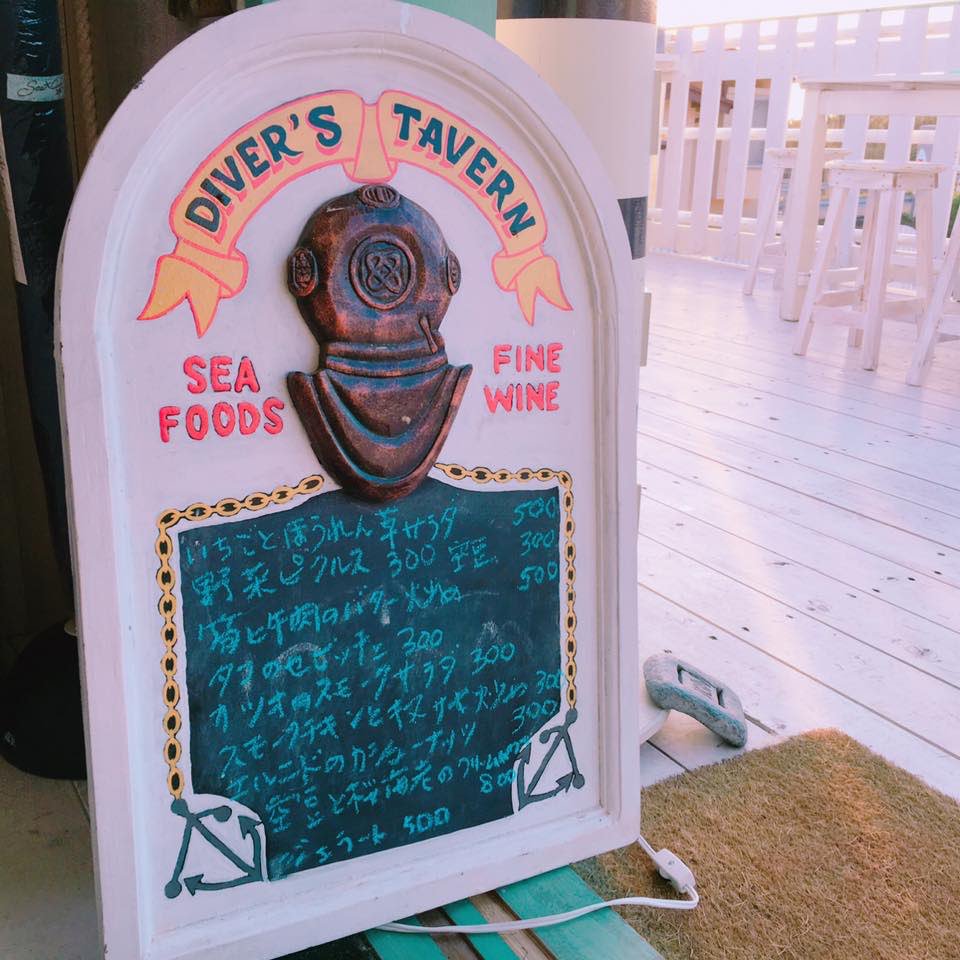 DIVER'S TAVERN
SEA FOODS
FINE WINE
いちごとほうれん草サラダ 500
野菜ピクルス 300 空豆 300
筍と牛肉のバター炒め 500
300
カツオのスモークサラダ 300
スモークチキンとキヌサヤ炒め 300
エルニドのカシューナッツ 300
空豆と桜海老の 800
ジェラート 500